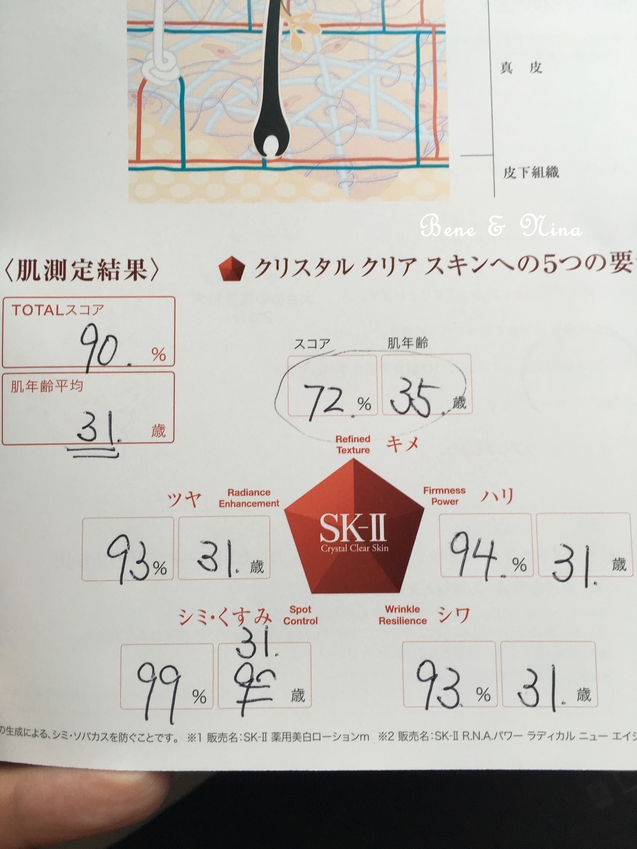 真 皮
皮下組織
Bene & Nina
〈肌測定結果〉
クリスタル クリア スキンへの5つの要
TOTALスコア
90. %
肌年齢平均
31. 歳
スコア 肌年齢
72. % 35. 歳
Refined
Texture キメ
ツヤ Radiance
Enhancement
93 % 31. 歳
Firmness
Power ハリ
94. % 31. 歳
SK-II
Crystal Clear Skin
シミ・くすみ Spot
Control
31.
99 % 歳
Wrinkle
Resilience シワ
93. % 31. 歳
の生成による、シミ・ソバカスを防ぐことです。 ※1 販売名:SK-II 薬用美白ローションm ※2 販売名:SK-II R.N.A.パワー ラディカル ニュー エイジ